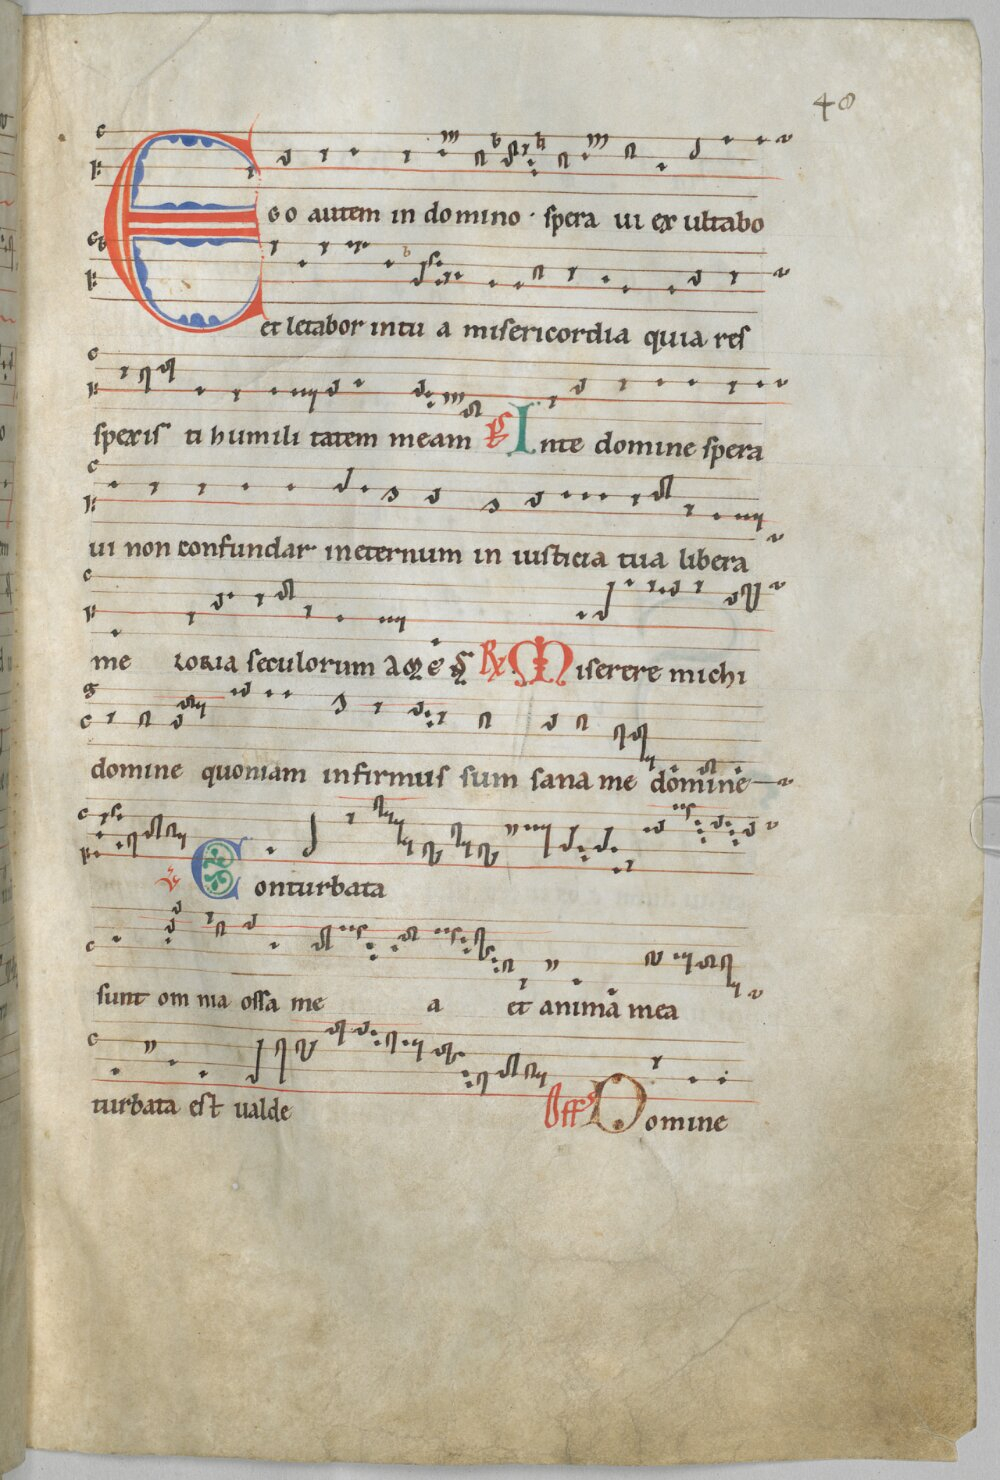 48
Ego autem in domino · spera ui ex ultabo
et letabor in tu a misericordia quia res
spexis ti humili tatem meam Ps In te domine spera
ui non confundar in eternum in iusticia tua libera
me loria seculorum amē R℣ Miserere michi
domine quoniam infirmus sum sana me domine
℣ Conturbata
sunt om nia ossa me a et animā mea
turbata est ualde Off Domine